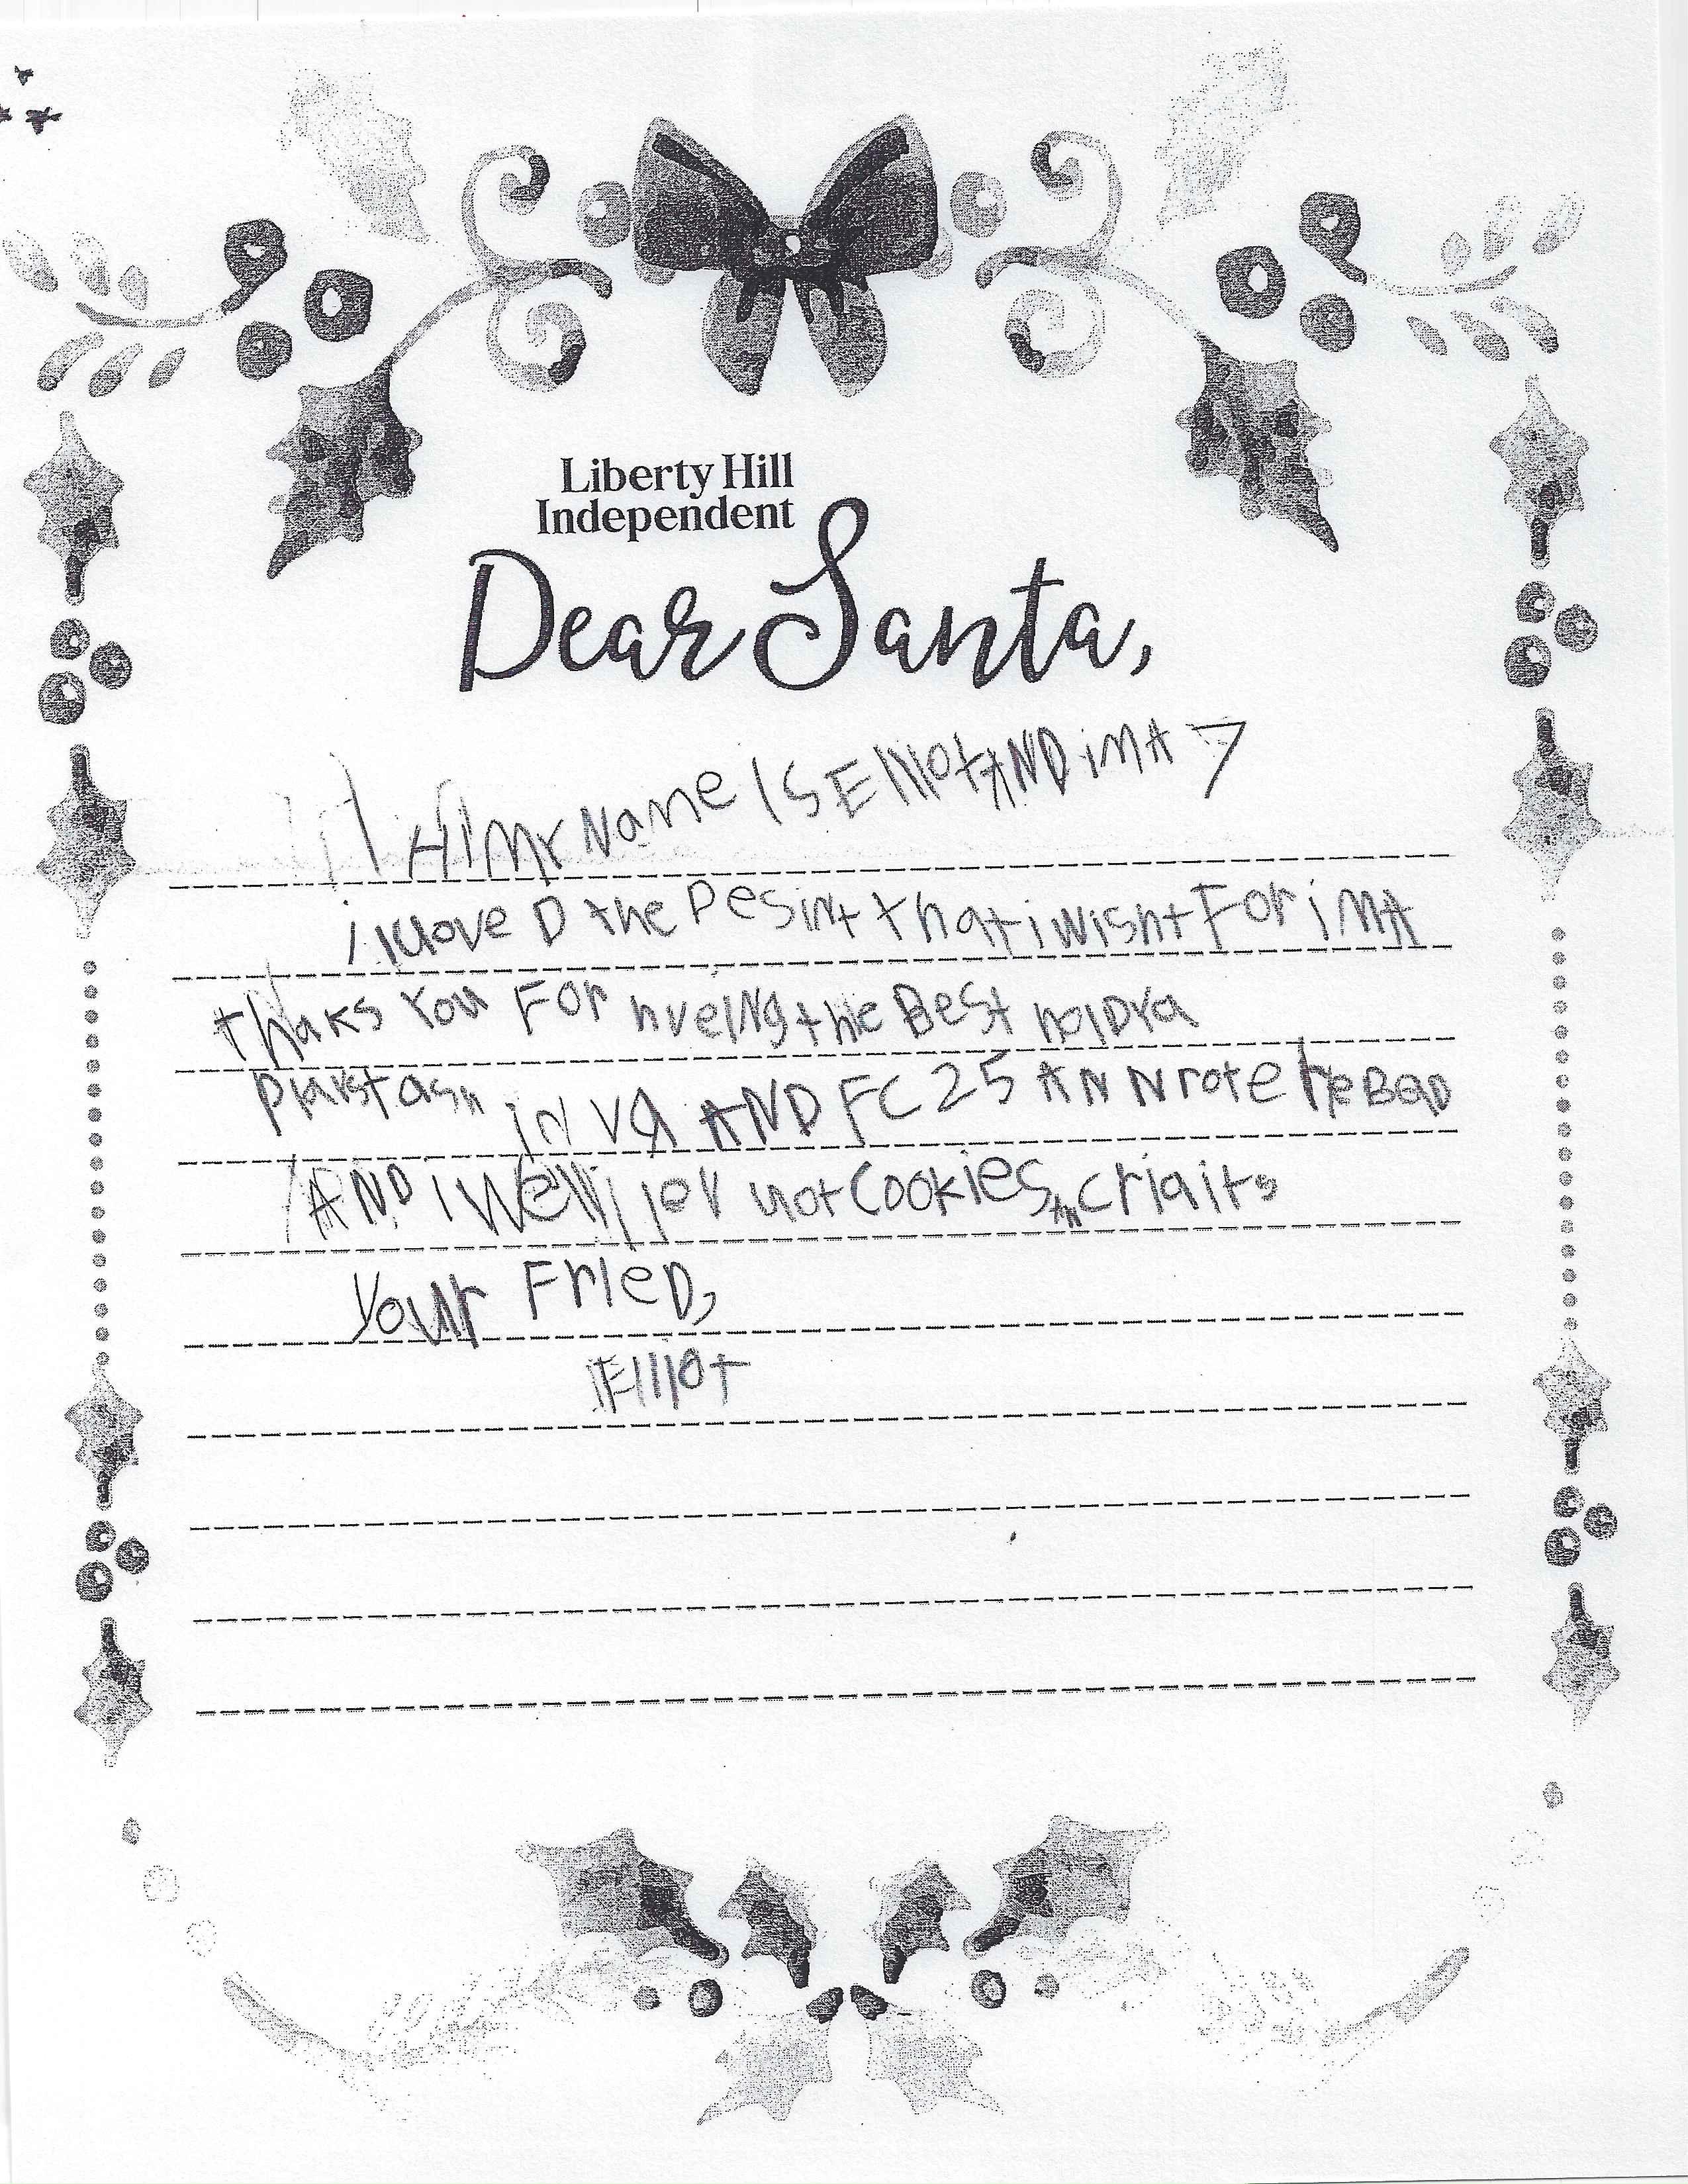 Liberty Hill
Independent
Dear Santa,
HI MY Name IS EllIot AND im A 7
i love D the Pesint that i wisht For im A
thaks You For hveing the Best holDya
plaistashn in VA AND FC 25 AN N rote the BaD
AND i Well lev not Cookies AN criaits
Your FrIeD,
EllIot